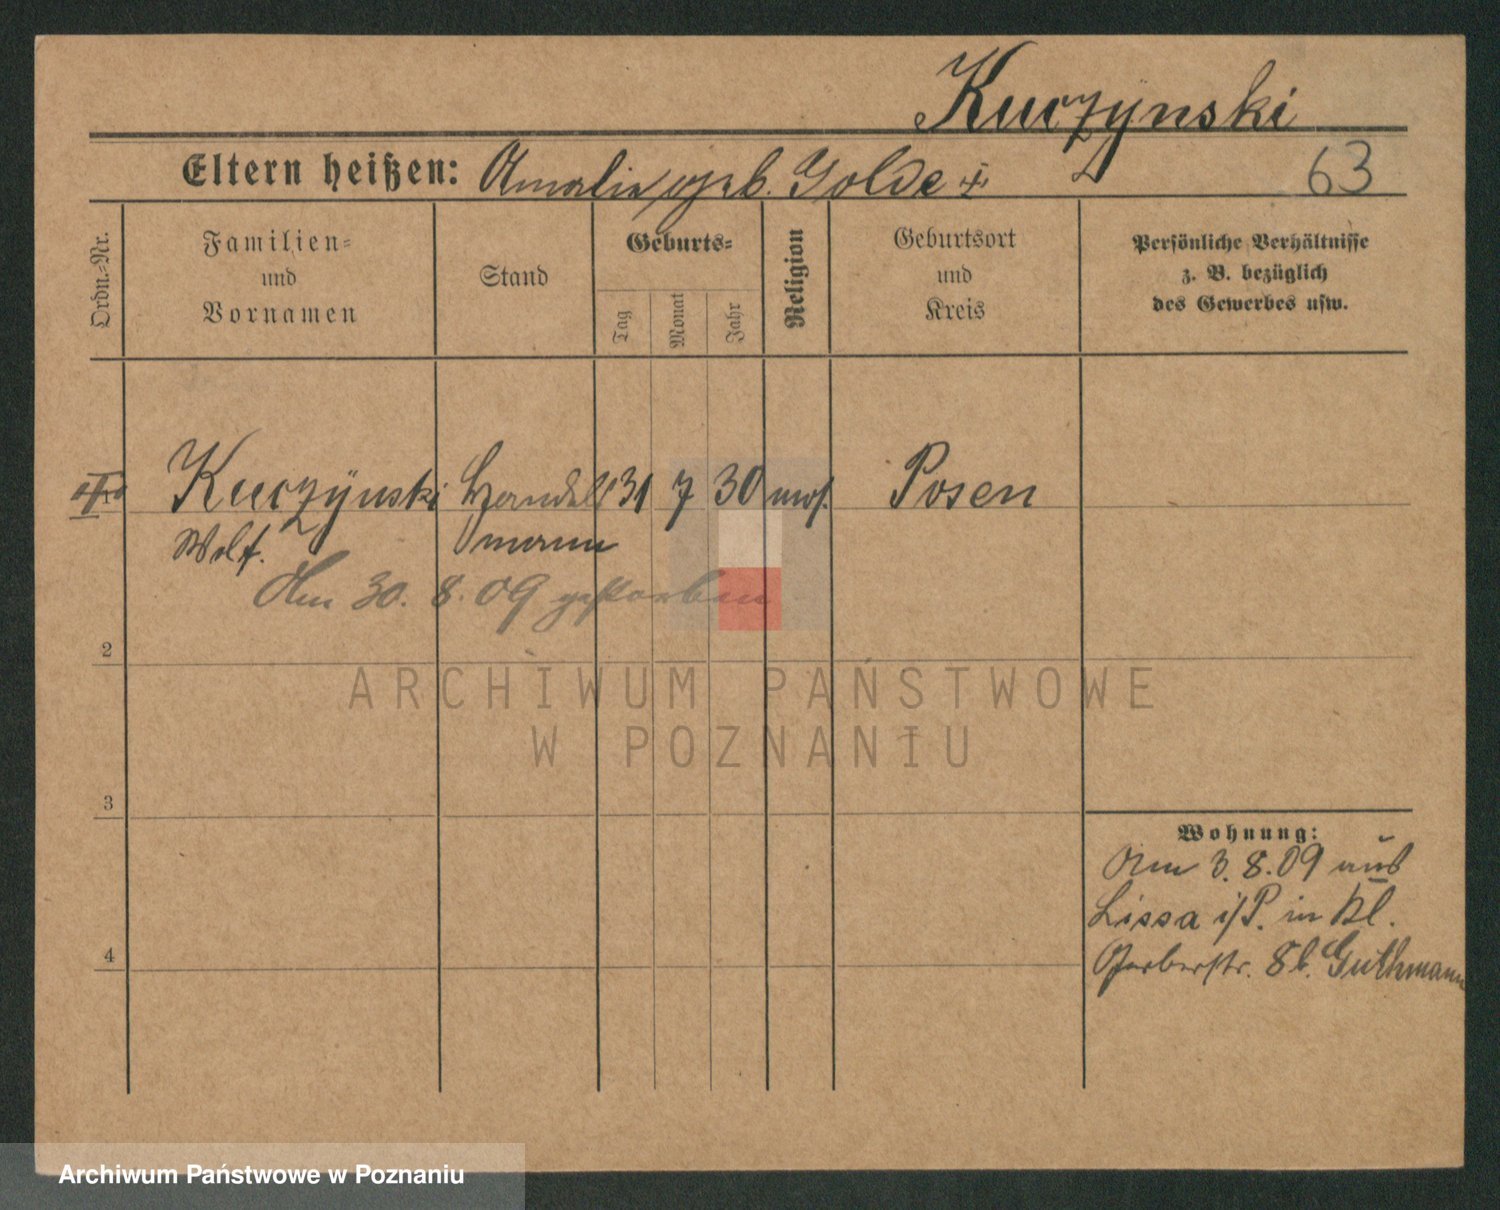 Kuczÿnski
Eltern heißen: Amalie geb. Golde
63
Ordn.-Nr.
Familien-
und
Vornamen
Stand
Geburts-
Tag
Monat
Jahr
Religion
Geburtsort
und
Kreis
Persönliche Verhältnisse
z. B. bezüglich
des Gewerbes usw.
Kuczÿnski Handels 31 7 30 mos. Posen
Wolf. mann
Am 30. 8. 09 gestorben
2
ARCHIWUM PAŃSTWOWE
W POZNANIU
3
Wohnung:
Am 3. 8. 09 aus
Lissa i/P. in Kl.
Gerberstr. 8b. Guthmann
4
Archiwum Państwowe w Poznaniu